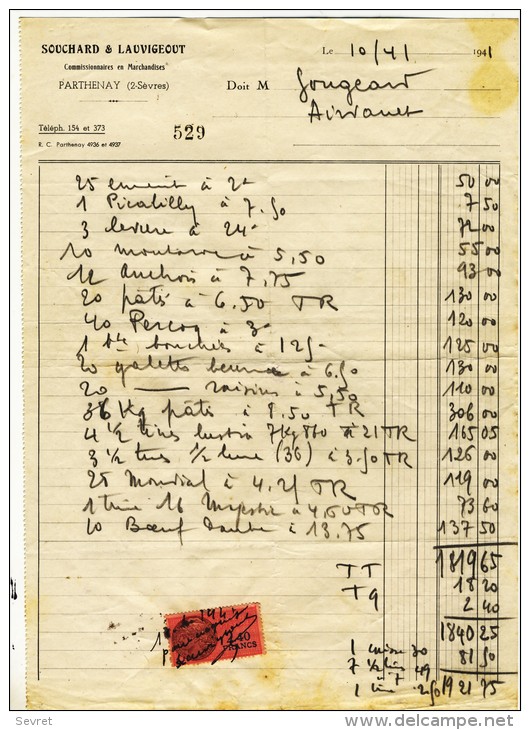 SOUCHARD & LAUVIGEOUT
Commissionnaires en Marchandises
PARTHENAY (2-Sèvres)
Téléph. 154 et 373
R. C. Parthenay 4936 et 4937
529
Le 10/41 1941
Doit M Gougeard
Airvault
25 à 2 50 00
1 Picalilly à 7.50 7 50
3 levure à 24 72 00
10 moutarde à 5,50 55 00
12 anchois à 7,75 93 00
20 pâtés à 6.50 TR 130 00
40 à 3 120 00
1 bte bouchées à 125 125 00
20 galettes beurre à 6.50 130 00
20 — raisins à 5,50 110 00
36 Kg pâtes à 8,50 TR 306 00
4 1/2 7Kg860 à 21 TR 165 05
3 1/2 1/2 lune (36) à 3.50 TR 126 00
28 Mondial à 4.25 TR 119 00
1 16 à 4,60 TR 73 60
10 Bœuf Daube à 13.75 137 50
1819 65
TT 18 20
Tq 2 40
1840 25
1 caisse 30 81 50
7 1/2 à 7 49
1 2,50 1921 75
2.40
FRANCS
Sevret
www.delcampe.net